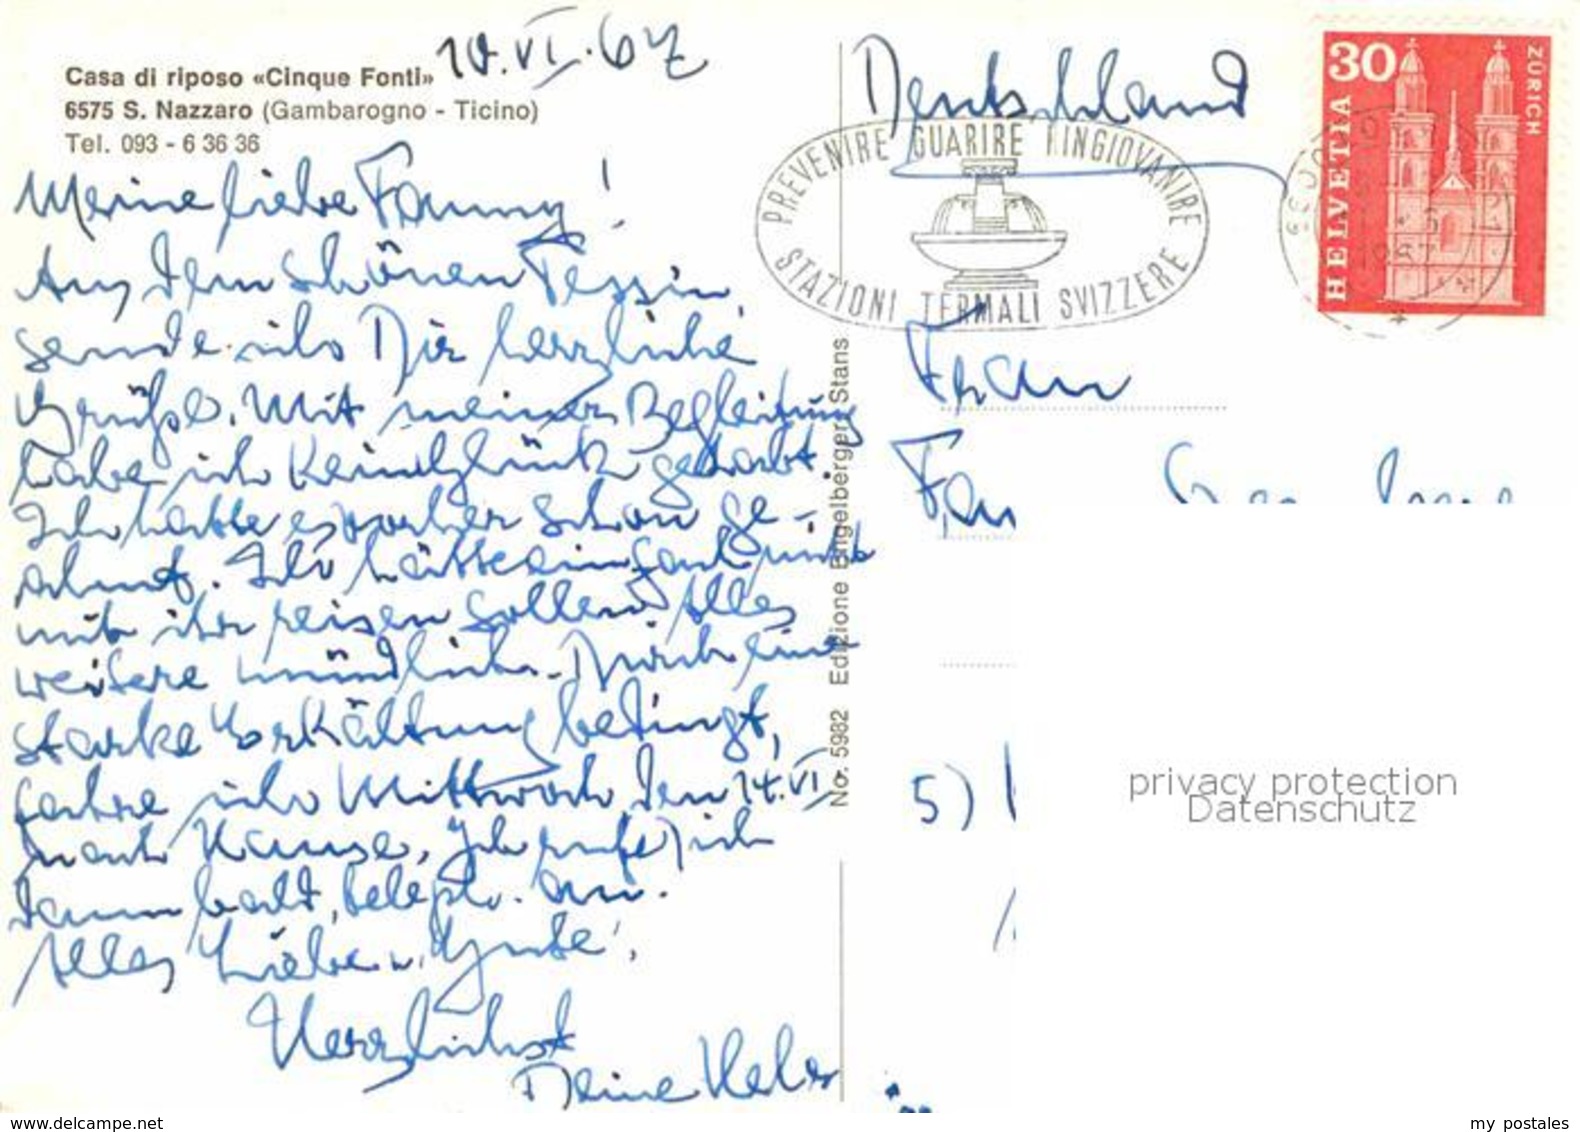 Casa di riposo «Cinque Fonti»
6575 S. Nazzaro (Gambarogno - Ticino)
Tel. 093 - 6 36 36
10.VI.67
Meine liebe Fanny!
Aus dem schönen Tessin,
sende ich Dir herzliche
Grüße. Mit meiner Begleitung
habe ich kein Glück gehabt.
Ich hatte es vorher schon ge-
ahnt. Ich hätte einfach nicht
mit ihr reisen sollen. Alles
weitere mündlich. Durch eine
starke Erkältung bedingt,
fahre ich Mittwoch den 14.VI.
nach Hause. Ich rufe Dich
dann bald, teleph. an.
Alles Liebe u. Gute!
Herzlichst
Deine
No. 5982 Edizione Engelberger Stans
Deutschland
PREVENIRE GUARIRE RINGIOVANIRE
STAZIONI TERMALI SVIZZERE
30
HELVETIA
ZÜRICH
1967
Frau
5)
privacy protection
Datenschutz
delcampe.net
my postales